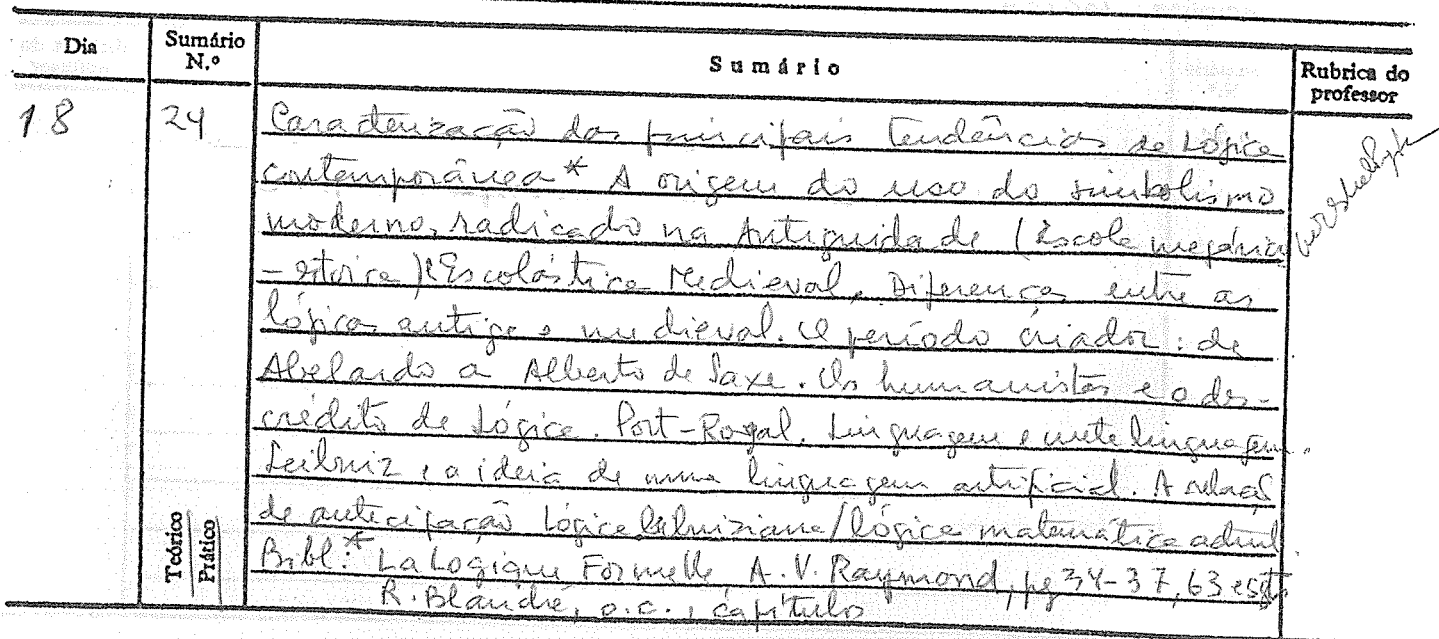 Dia
Sumário N.º
Sumário
Rubrica do professor
18
24
Caracterização das principais tendências de Lógica
contemporânea* A origem do uso do simbolismo
moderno, radicado na Antiguidade (Escola megárica
-estoica) e Escolástica Medieval. Diferenças entre as
lógicas antiga e medieval. O período criador: de
Abelardo a Alberto de Saxe. Os humanistas e o des-
crédito de Lógica. Port-Royal. Linguagem e metelinguagem.
Leibniz e a ideia de uma linguagem artificial. A relação
de antecipação lógica leibniziana/lógica matemática actual.
Bibl.* La Logique Formelle A. V. Raymond, pg 34-37, 63
R. Blanché, o.c., capítulos
Teórico
Prático